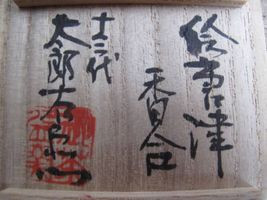 絵唐津
香合
十三代
太郎右衛門